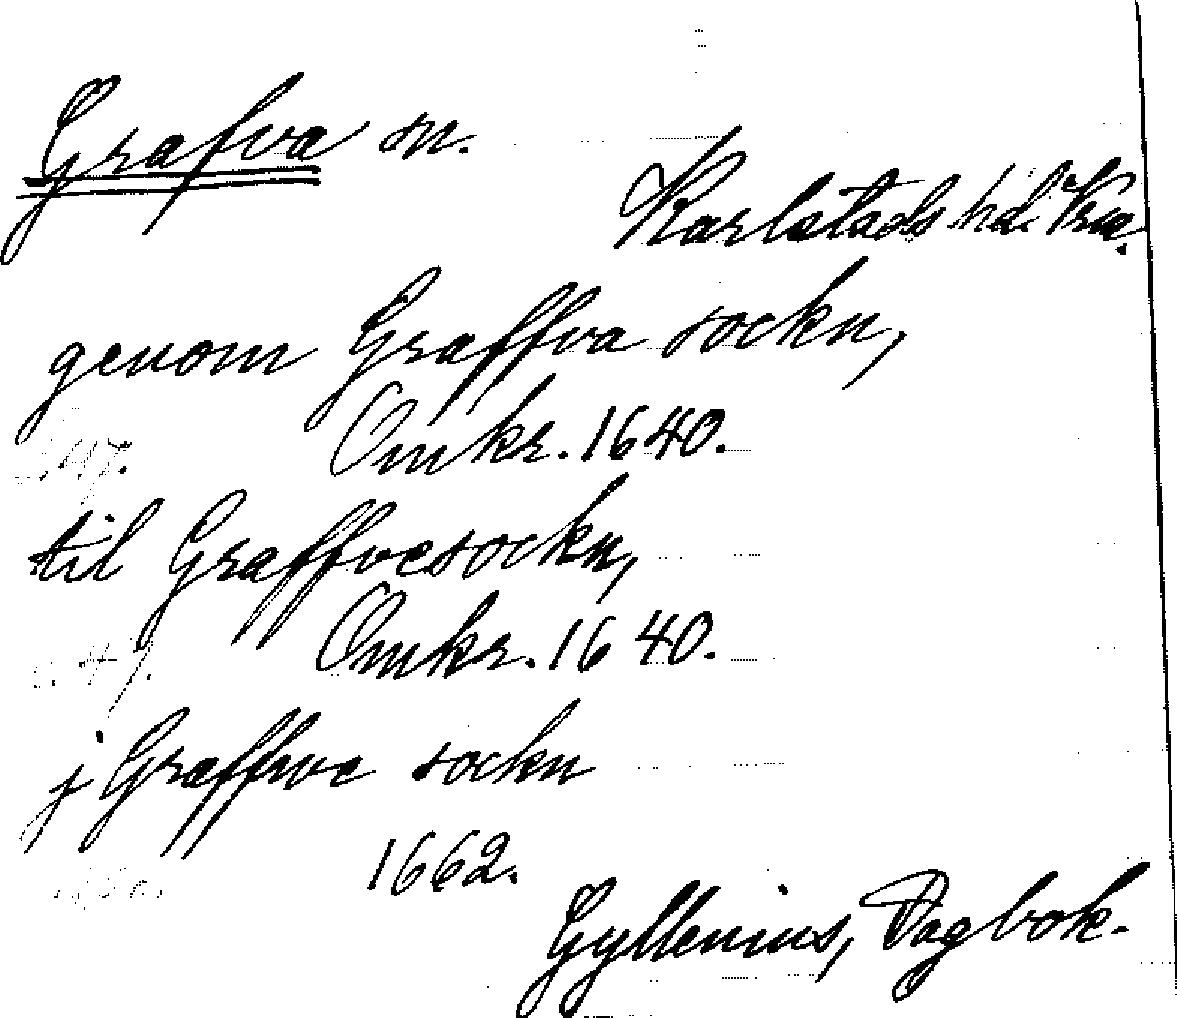 Grafva sn.
Karlstads hd.
genom Graffva sockn,
Omkr. 1640.
til Graffvesockn,
Omkr. 1640.
j Graffwe sockn
1662.
Gyllenius, Dagbok.